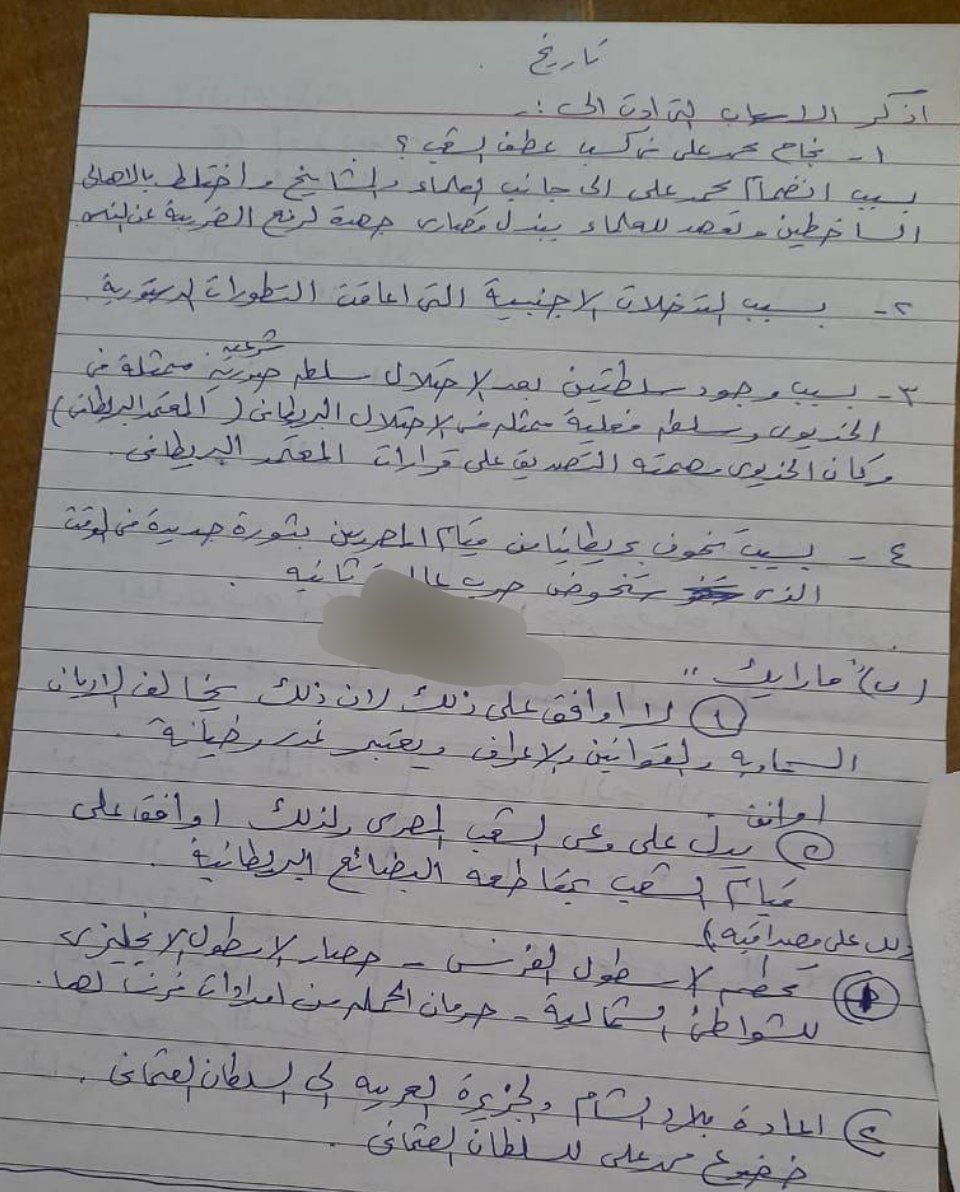 تاريخ
اذكر الاسباب التى ادت الى :-
١- نجاح محمد على فى كسب عطف الشعب ؟
بسبب انضمام محمد على الى جانب العلماء والمشايخ واختلط بالاهالى
الساخطين وتعهد للعلماء ببذل قصارى جهدة لرفع الضريبة عن الناس
٢- بسبب التدخلات الاجنبية التى اعاقت التطورات الدستورية.
شرعيه
٣- بسبب وجود سلطتين بعد الاحتلال سلطه صورية ممثلة فى
الخديوى وسلطه فعلية ممثله فى الاحتلال البريطانى (المعتمد البريطانى)
وكان الخديوى مهمته التصديق على قرارات المعتمد البريطانى.
٤- بسبب تخوف بريطانيا من قيام المصريين بثورة جديدة فى الوقت
الذى ستخوض حرب ثانيه .
(ب) "ما رايك"
١ لا اوافق على ذلك لان ذلك يخالف الاديان
السماويه والقوانين والاعراف ويعتبر غدر وخيانة.
اوافق
٢ يدل على وعى الشعب المصرى ولذلك اوافق على
قيام الشعب بمقاطعه البضائع البريطانية.
دلل على مصداقية)
١ تحطم الاسطول الفرنسى - حصار الاسطول الانجليزى
للشواطئ الشمالية - حرمان الحمله من امدادات فرنسا لها.
٢ اعادة بلاد الشام والجزيرة العربيه الى السلطان العثمانى.
خضوع محمد على للسلطان العثمانى.